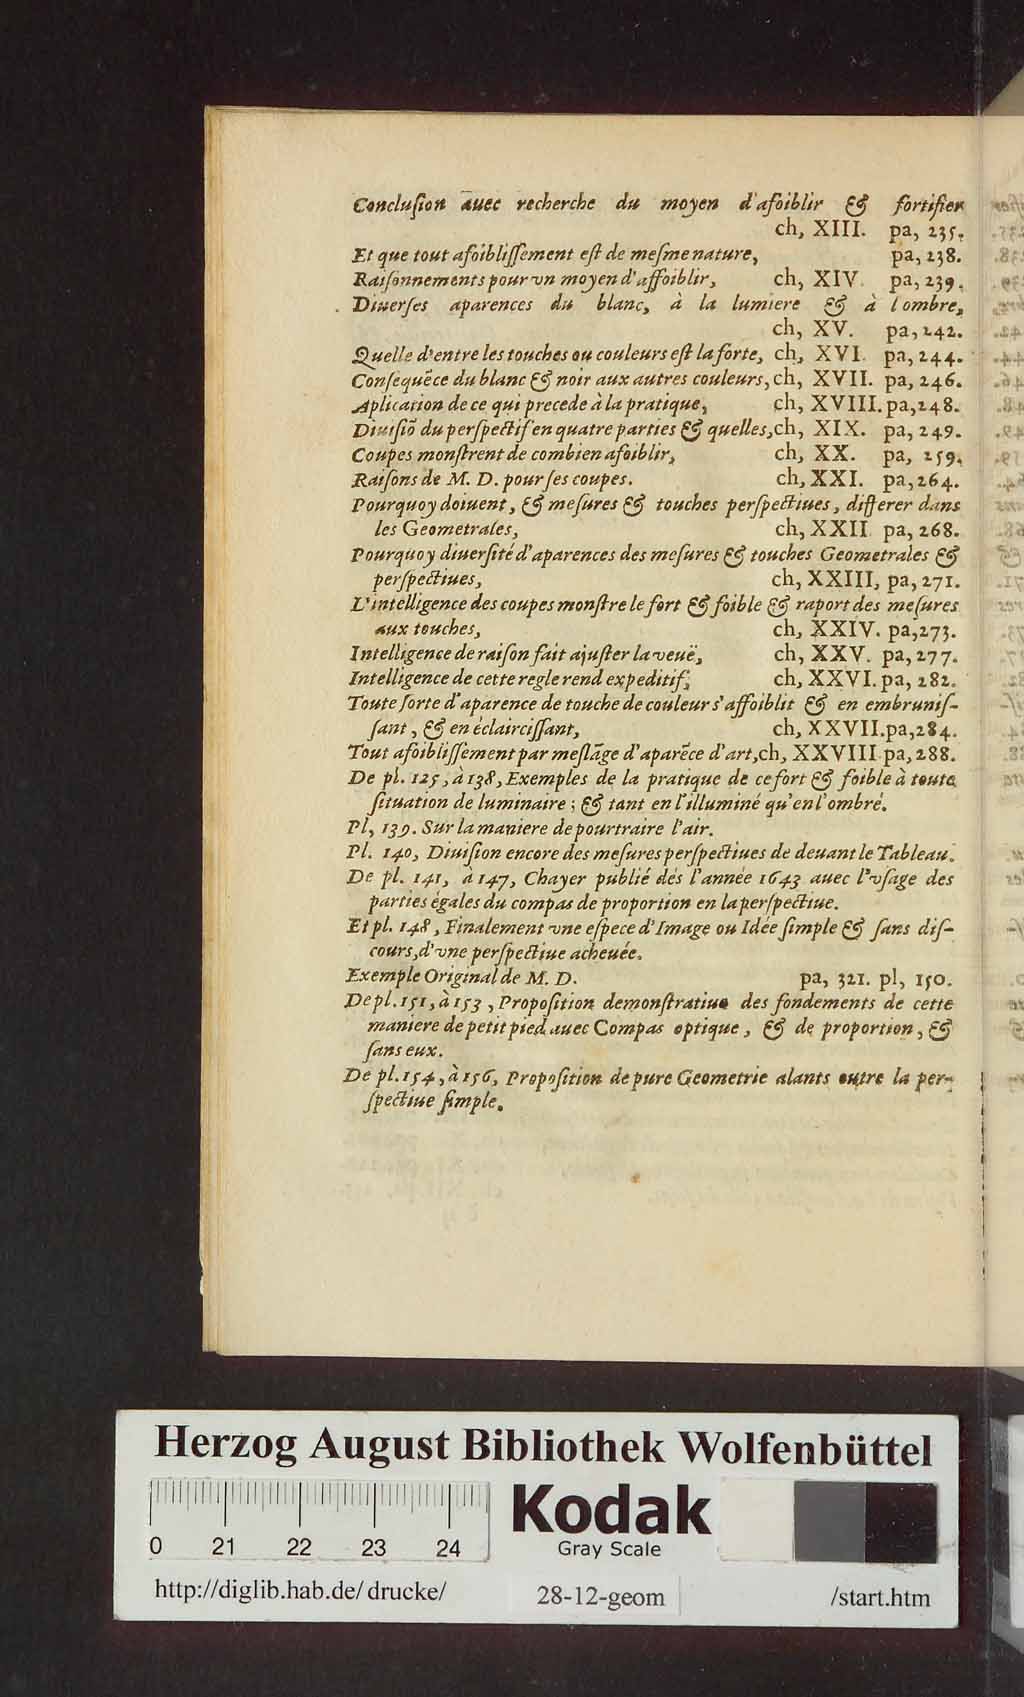 Concluſion auec recherche du moyen d'afoiblir & fortifier
ch, XIII. pa, 235.
Et que tout afoibliſſement eſt de meſme nature, pa, 238.
Raiſonnements pour vn moyen d'affoiblir, ch, XIV. pa, 239.
Diuerſes aparences du blanc, à la lumiere & à l'ombre,
ch, XV. pa, 242.
Quelle d'entre les touches ou couleurs eſt la forte, ch, XVI. pa, 244.
Conſequẽce du blanc & noir aux autres couleurs, ch, XVII. pa, 246.
Aplication de ce qui precede à la pratique, ch, XVIII. pa, 248.
Diuiſiõ du perſpectif en quatre parties & quelles, ch, XIX. pa, 249.
Coupes monſtrent de combien afoiblir, ch, XX. pa, 259.
Raiſons de M. D. pour ſes coupes. ch, XXI. pa, 264.
Pourquoy doiuent, & meſures & touches perſpectiues, differer dans
les Geometrales, ch, XXII. pa, 268.
Pourquoy diuerſité d'aparences des meſures & touches Geometrales &
perſpectiues, ch, XXIII, pa, 271.
L'intelligence des coupes monſtre le fort & foible & raport des meſures
aux touches, ch, XXIV. pa, 273.
Intelligence de raiſon fait aiuſter la veuë, ch, XXV. pa, 277.
Intelligence de cette regle rend expeditif, ch, XXVI. pa, 282.
Toute ſorte d'aparence de touche de couleur s'affoiblit & en embruniſ-
ſant, & en éclairciſſant, ch, XXVII. pa, 284.
Tout afoibliſſement par meſlãge d'aparẽce d'art, ch, XXVIII. pa, 288.
De pl. 125, à 138, Exemples de la pratique de ce fort & foible à toute
ſituation de luminaire ; & tant en l'illuminé qu'en l'ombré.
Pl, 139. Sur la maniere de pourtraire l'air.
Pl. 140, Diuiſion encore des meſures perſpectiues de deuant le Tableau.
De pl. 141, à 147, Chayer publié dés l'année 1643 auec l'vſage des
parties égales du compas de proportion en la perſpectiue.
Et pl. 148, Finalement vne eſpece d'Image ou Idée ſimple & ſans diſ-
cours, d'vne perſpectiue acheuée.
Exemple Original de M. D. pa, 321. pl, 150.
De pl. 151, à 153, Propoſition demonſtratiue des fondements de cette
maniere de petit pied auec Compas optique, & de proportion, &
ſans eux.
De pl. 154, à 156, Propoſition de pure Geometrie alants outre la per-
ſpectiue ſimple.
Herzog August Bibliothek Wolfenbüttel
0 21 22 23 24
Kodak
Gray Scale
http://diglib.hab.de/drucke/ 28-12-geom /start.htm